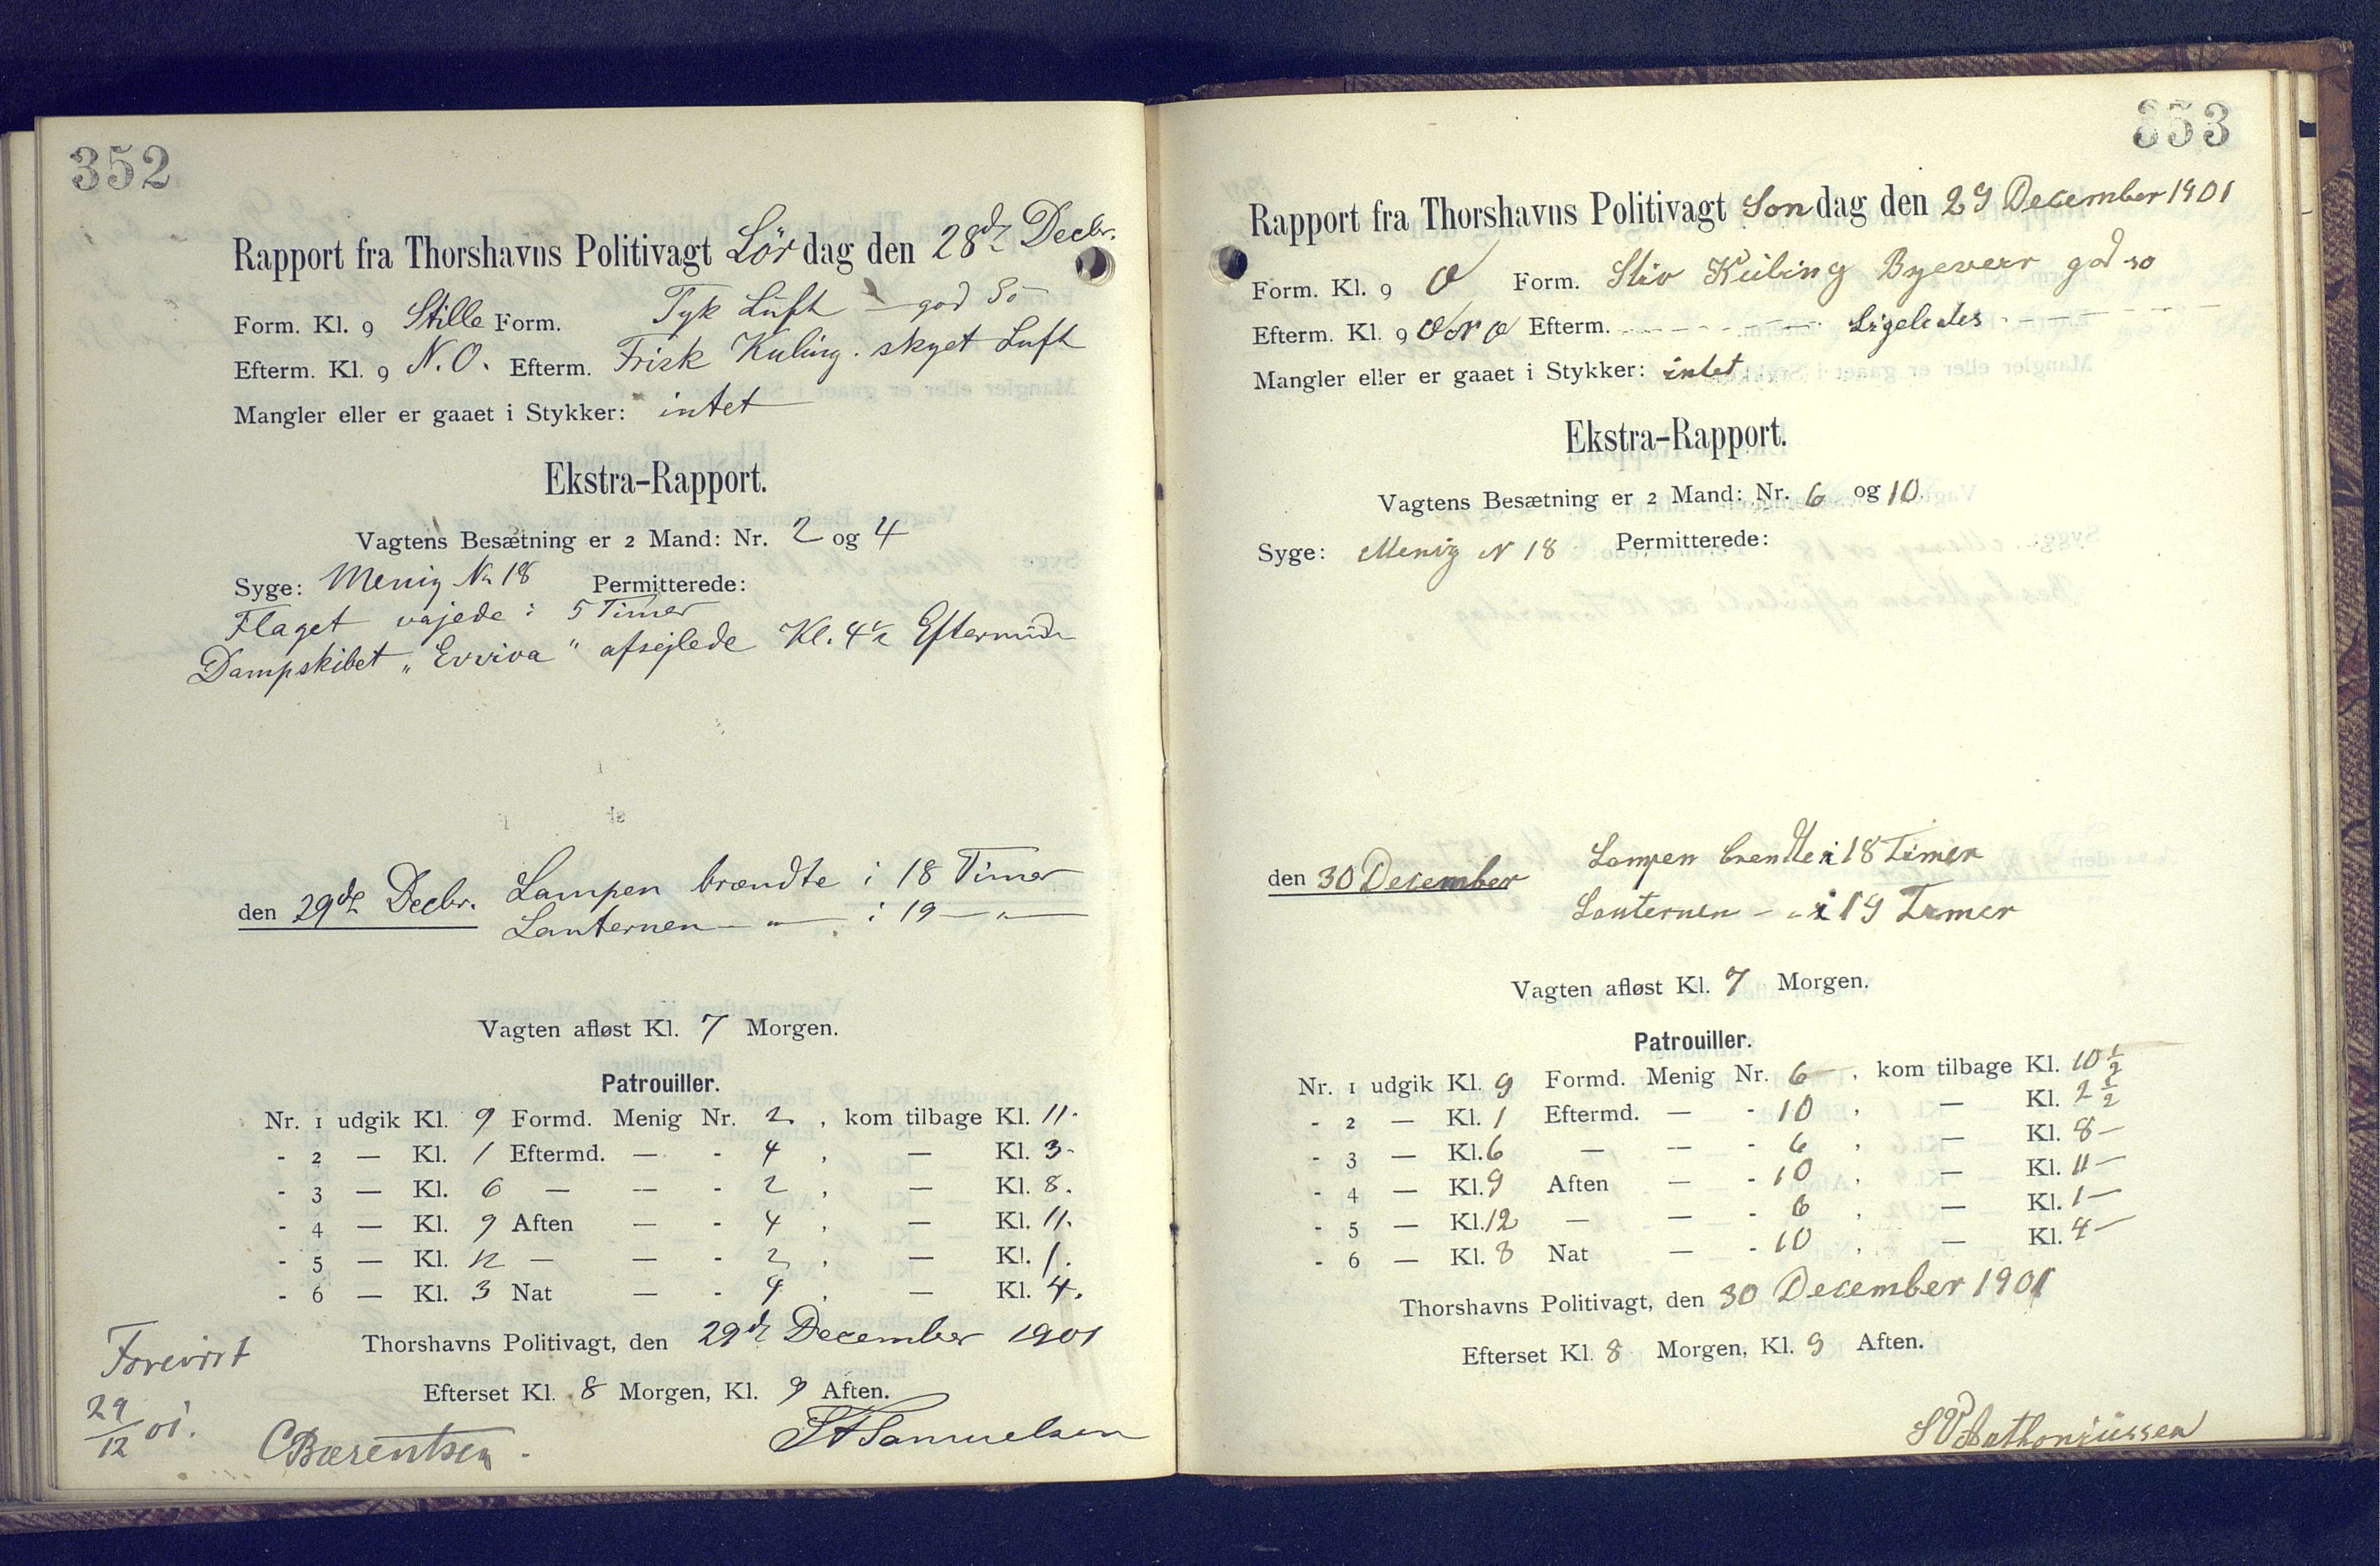 352
Rapport fra Thorshavns Politivagt Lördag den 28de Decbr.
Form. Kl. 9 Stille Form. Tyk Luft - god Sö
Efterm. Kl. 9 N.O. Efterm. Frisk Kuling. skyet Luft
Mangler eller er gaaet i Stykker: intet
Ekstra-Rapport.
Vagtens Besætning er 2 Mand: Nr. 2 og 4
Syge: Menig No 18 Permitterede:
Flaget vajede i 5 Timer
Dampskibet "Evviva" afsejlede Kl. 4½ Eftermid
den 29de Decbr. Lampen brændte i 18 Timer
Lanternen — " — i 19 — " —
Vagten afløst Kl. 7 Morgen.
Patrouiller.
Nr. 1 udgik Kl. 9 Formd. Menig Nr. 2, kom tilbage Kl. 11.
- 2 — Kl. 1 Eftermd. — - 4, — Kl. 3.
- 3 — Kl. 6 — — - 2, — Kl. 8.
- 4 — Kl. 9 Aften — - 4, — Kl. 11.
- 5 — Kl. 12 — — - 2, — Kl. 1.
- 6 — Kl. 3 Nat — - 4, — Kl. 4.
Thorshavns Politivagt, den 29de December 1901
Efterset Kl. 8 Morgen, Kl. 9 Aften.
Forevist
29/12 01.
CBærentsen.
Samuelsen
353
Rapport fra Thorshavns Politivagt Söndag den 29 December 1901
Form. Kl. 9 O Form. Stiv Kuling Byeveir god so
Efterm. Kl. 9 Efterm. - - - - - Ligeledes - - - - -
Mangler eller er gaaet i Stykker: intet
Ekstra-Rapport.
Vagtens Besætning er 2 Mand: Nr. 6 og 10
Syge: Menig N 18 Permitterede:
den 30 December Lampen brendte i 18 Timer
Lanternen - " - i 19 Timer
Vagten afløst Kl. 7 Morgen.
Patrouiller.
Nr. 1 udgik Kl. 9 Formd. Menig Nr. 6, kom tilbage Kl. 10½
- 2 — Kl. 1 Eftermd. — - 10, — Kl. 2½
- 3 — Kl. 6 — — - 6, — Kl. 8
- 4 — Kl. 9 Aften — - 10, — Kl. 11
- 5 — Kl. 12 — — - 6, — Kl. 1
- 6 — Kl. 3 Nat — - 10, — Kl. 4
Thorshavns Politivagt, den 30 December 1901
Efterset Kl. 8 Morgen, Kl. 9 Aften.
SPAnthoniussen